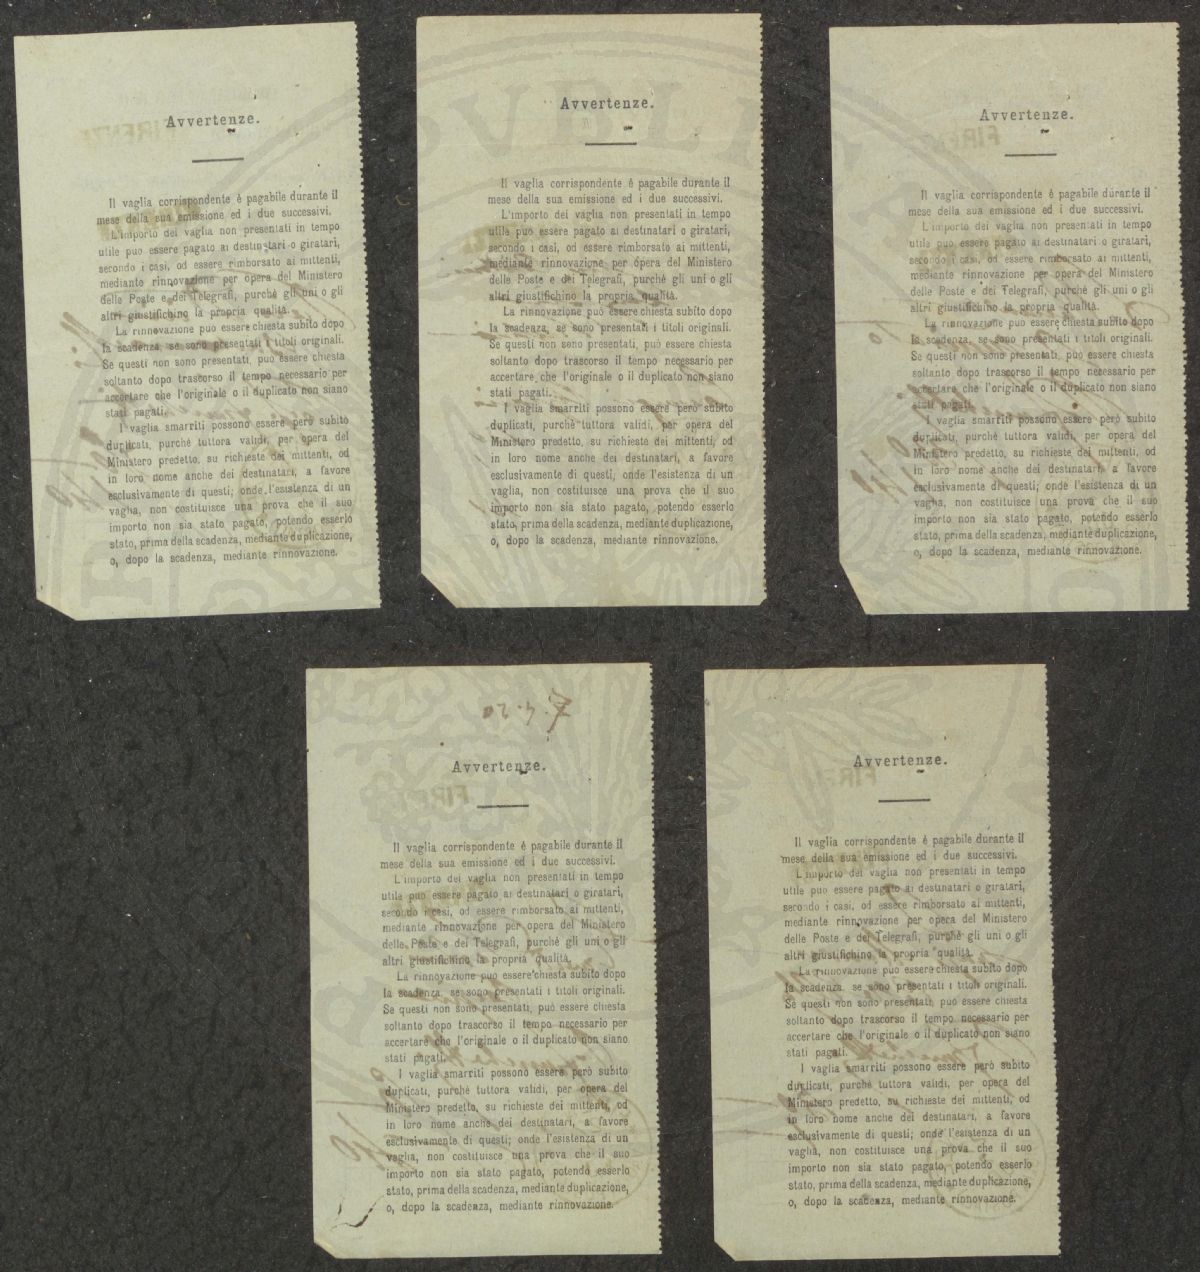 Avvertenze.
Il vaglia corrispondente è pagabile durante il
mese della sua emissione ed i due successivi.
L'importo dei vaglia non presentati in tempo
utile può essere pagato ai destinatari o giratari,
secondo i casi, od essere rimborsato ai mittenti,
mediante rinnovazione per opera del Ministero
delle Poste e dei Telegrafi, purchè gli uni o gli
altri giustifichino la propria qualità.
La rinnovazione può essere chiesta subito dopo
la scadenza, se sono presentati i titoli originali.
Se questi non sono presentati, può essere chiesta
soltanto dopo trascorso il tempo necessario per
accertare che l'originale o il duplicato non siano
stati pagati.
I vaglia smarriti possono essere però subito
duplicati, purchè tuttora validi, per opera del
Ministero predetto, su richieste dei mittenti, od
in loro nome anche dei destinatari, a favore
esclusivamente di questi; onde l'esistenza di un
vaglia, non costituisce una prova che il suo
importo non sia stato pagato, potendo esserlo
stato, prima della scadenza, mediante duplicazione,
o, dopo la scadenza, mediante rinnovazione.
Avvertenze.
Il vaglia corrispondente è pagabile durante il
mese della sua emissione ed i due successivi.
L'importo dei vaglia non presentati in tempo
utile può essere pagato ai destinatari o giratari,
secondo i casi, od essere rimborsato ai mittenti,
mediante rinnovazione per opera del Ministero
delle Poste e dei Telegrafi, purchè gli uni o gli
altri giustifichino la propria qualità.
La rinnovazione può essere chiesta subito dopo
la scadenza, se sono presentati i titoli originali.
Se questi non sono presentati, può essere chiesta
soltanto dopo trascorso il tempo necessario per
accertare che l'originale o il duplicato non siano
stati pagati.
I vaglia smarriti possono essere però subito
duplicati, purchè tuttora validi, per opera del
Ministero predetto, su richieste dei mittenti, od
in loro nome anche dei destinatari, a favore
esclusivamente di questi; onde l'esistenza di un
vaglia, non costituisce una prova che il suo
importo non sia stato pagato, potendo esserlo
stato, prima della scadenza, mediante duplicazione,
o, dopo la scadenza, mediante rinnovazione.
Avvertenze.
Il vaglia corrispondente è pagabile durante il
mese della sua emissione ed i due successivi.
L'importo dei vaglia non presentati in tempo
utile può essere pagato ai destinatari o giratari,
secondo i casi, od essere rimborsato ai mittenti,
mediante rinnovazione per opera del Ministero
delle Poste e dei Telegrafi, purchè gli uni o gli
altri giustifichino la propria qualità.
La rinnovazione può essere chiesta subito dopo
la scadenza, se sono presentati i titoli originali.
Se questi non sono presentati, può essere chiesta
soltanto dopo trascorso il tempo necessario per
accertare che l'originale o il duplicato non siano
stati pagati.
I vaglia smarriti possono essere però subito
duplicati, purchè tuttora validi, per opera del
Ministero predetto, su richieste dei mittenti, od
in loro nome anche dei destinatari, a favore
esclusivamente di questi; onde l'esistenza di un
vaglia, non costituisce una prova che il suo
importo non sia stato pagato, potendo esserlo
stato, prima della scadenza, mediante duplicazione,
o, dopo la scadenza, mediante rinnovazione.
Avvertenze.
Il vaglia corrispondente è pagabile durante il
mese della sua emissione ed i due successivi.
L'importo dei vaglia non presentati in tempo
utile può essere pagato ai destinatari o giratari,
secondo i casi, od essere rimborsato ai mittenti,
mediante rinnovazione per opera del Ministero
delle Poste e dei Telegrafi, purchè gli uni o gli
altri giustifichino la propria qualità.
La rinnovazione può essere chiesta subito dopo
la scadenza, se sono presentati i titoli originali.
Se questi non sono presentati, può essere chiesta
soltanto dopo trascorso il tempo necessario per
accertare che l'originale o il duplicato non siano
stati pagati.
I vaglia smarriti possono essere però subito
duplicati, purchè tuttora validi, per opera del
Ministero predetto, su richieste dei mittenti, od
in loro nome anche dei destinatari, a favore
esclusivamente di questi; onde l'esistenza di un
vaglia, non costituisce una prova che il suo
importo non sia stato pagato, potendo esserlo
stato, prima della scadenza, mediante duplicazione,
o, dopo la scadenza, mediante rinnovazione.
Avvertenze.
Il vaglia corrispondente è pagabile durante il
mese della sua emissione ed i due successivi.
L'importo dei vaglia non presentati in tempo
utile può essere pagato ai destinatari o giratari,
secondo i casi, od essere rimborsato ai mittenti,
mediante rinnovazione per opera del Ministero
delle Poste e dei Telegrafi, purchè gli uni o gli
altri giustifichino la propria qualità.
La rinnovazione può essere chiesta subito dopo
la scadenza, se sono presentati i titoli originali.
Se questi non sono presentati, può essere chiesta
soltanto dopo trascorso il tempo necessario per
accertare che l'originale o il duplicato non siano
stati pagati.
I vaglia smarriti possono essere però subito
duplicati, purchè tuttora validi, per opera del
Ministero predetto, su richieste dei mittenti, od
in loro nome anche dei destinatari, a favore
esclusivamente di questi; onde l'esistenza di un
vaglia, non costituisce una prova che il suo
importo non sia stato pagato, potendo esserlo
stato, prima della scadenza, mediante duplicazione,
o, dopo la scadenza, mediante rinnovazione.